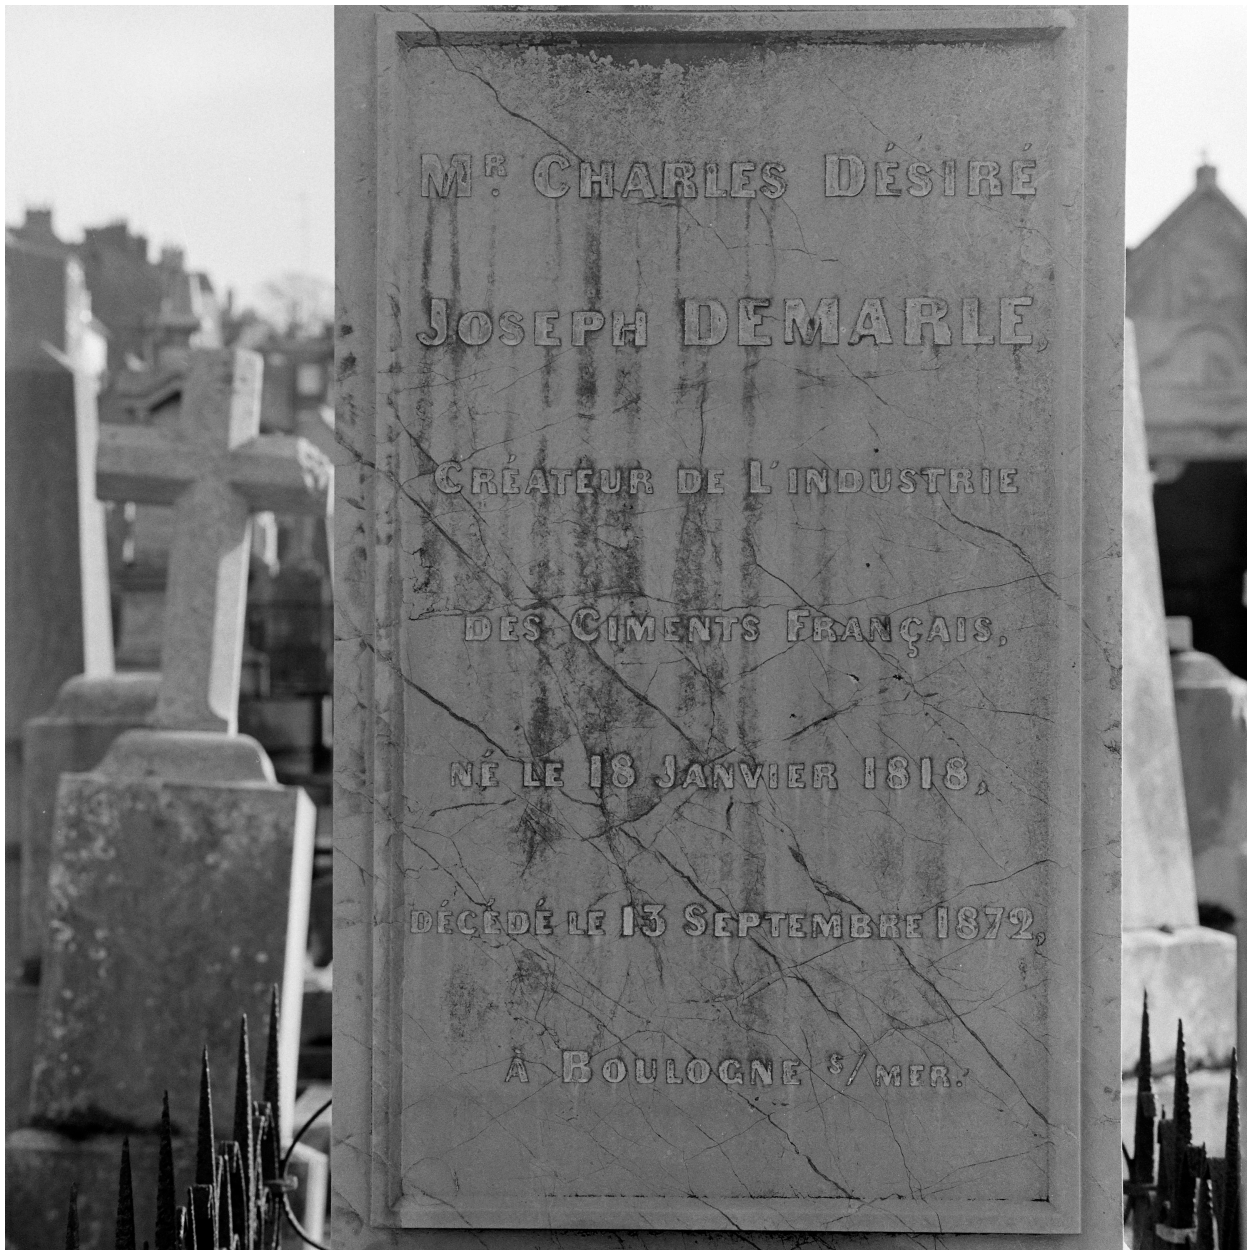 Mr. Charles Désiré
Joseph DEMARLE,
Créateur de L'industrie
des Ciments Français,
né le 18 Janvier 1818,
décédé le 13 Septembre 1872,
à Boulogne s/mer.